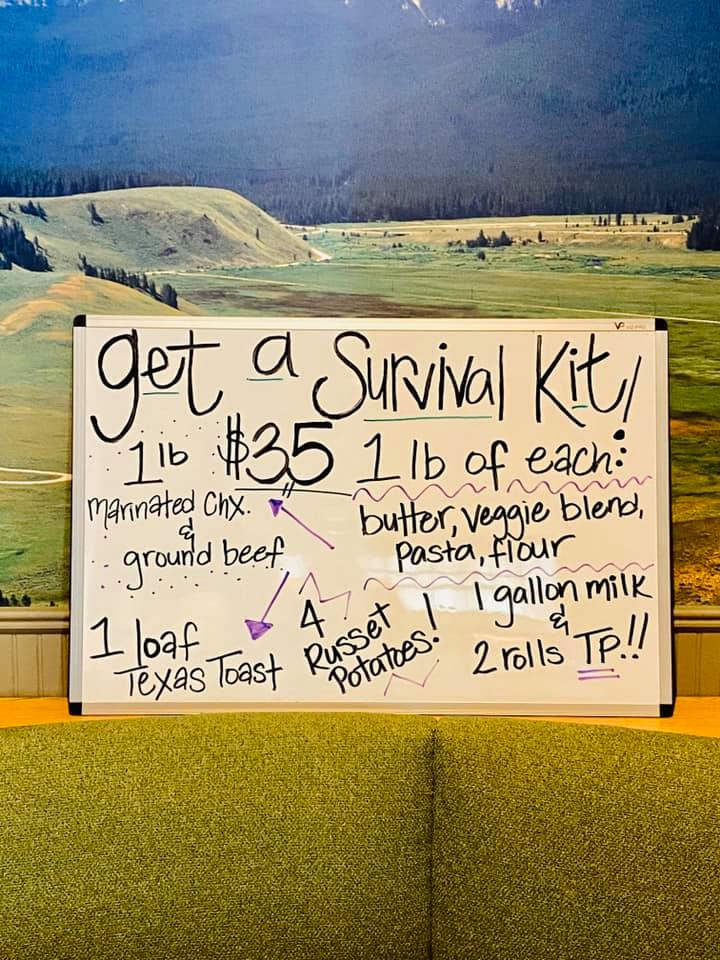 get a Survival Kit!
$35
1 lb
marinated Chx.
&
ground beef
1 lb of each:
butter, veggie blend,
pasta, flour
1 loaf
Texas Toast
4
Russet
Potatoes!
1 gallon milk
&
2 rolls TP!!